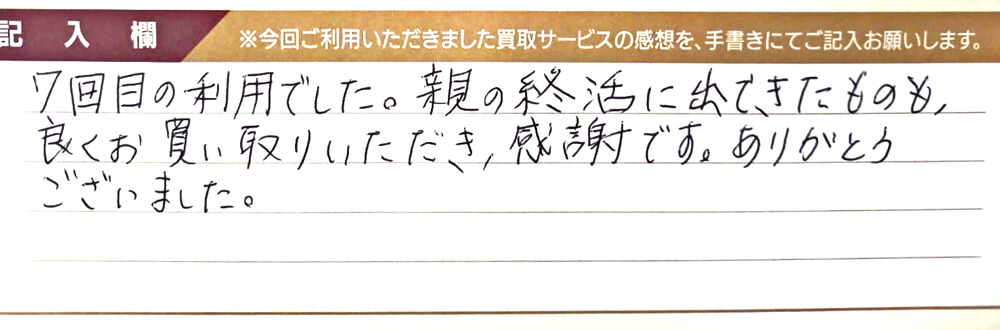 記入欄 ※今回ご利用いただきました買取サービスの感想を、手書きにてご記入お願いします。
7回目の利用でした。親の終活に出てきたものも、
良くお買い取りいただき、感謝です。ありがとう
ございました。